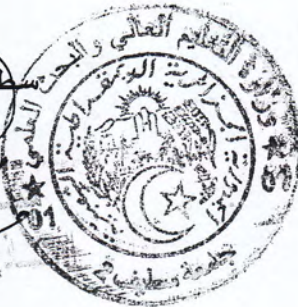 وزارة التعليم العالي والبحث العلمي
الجمهورية الجزائرية الديمقراطية الشعبية
01
جامعة سطيف